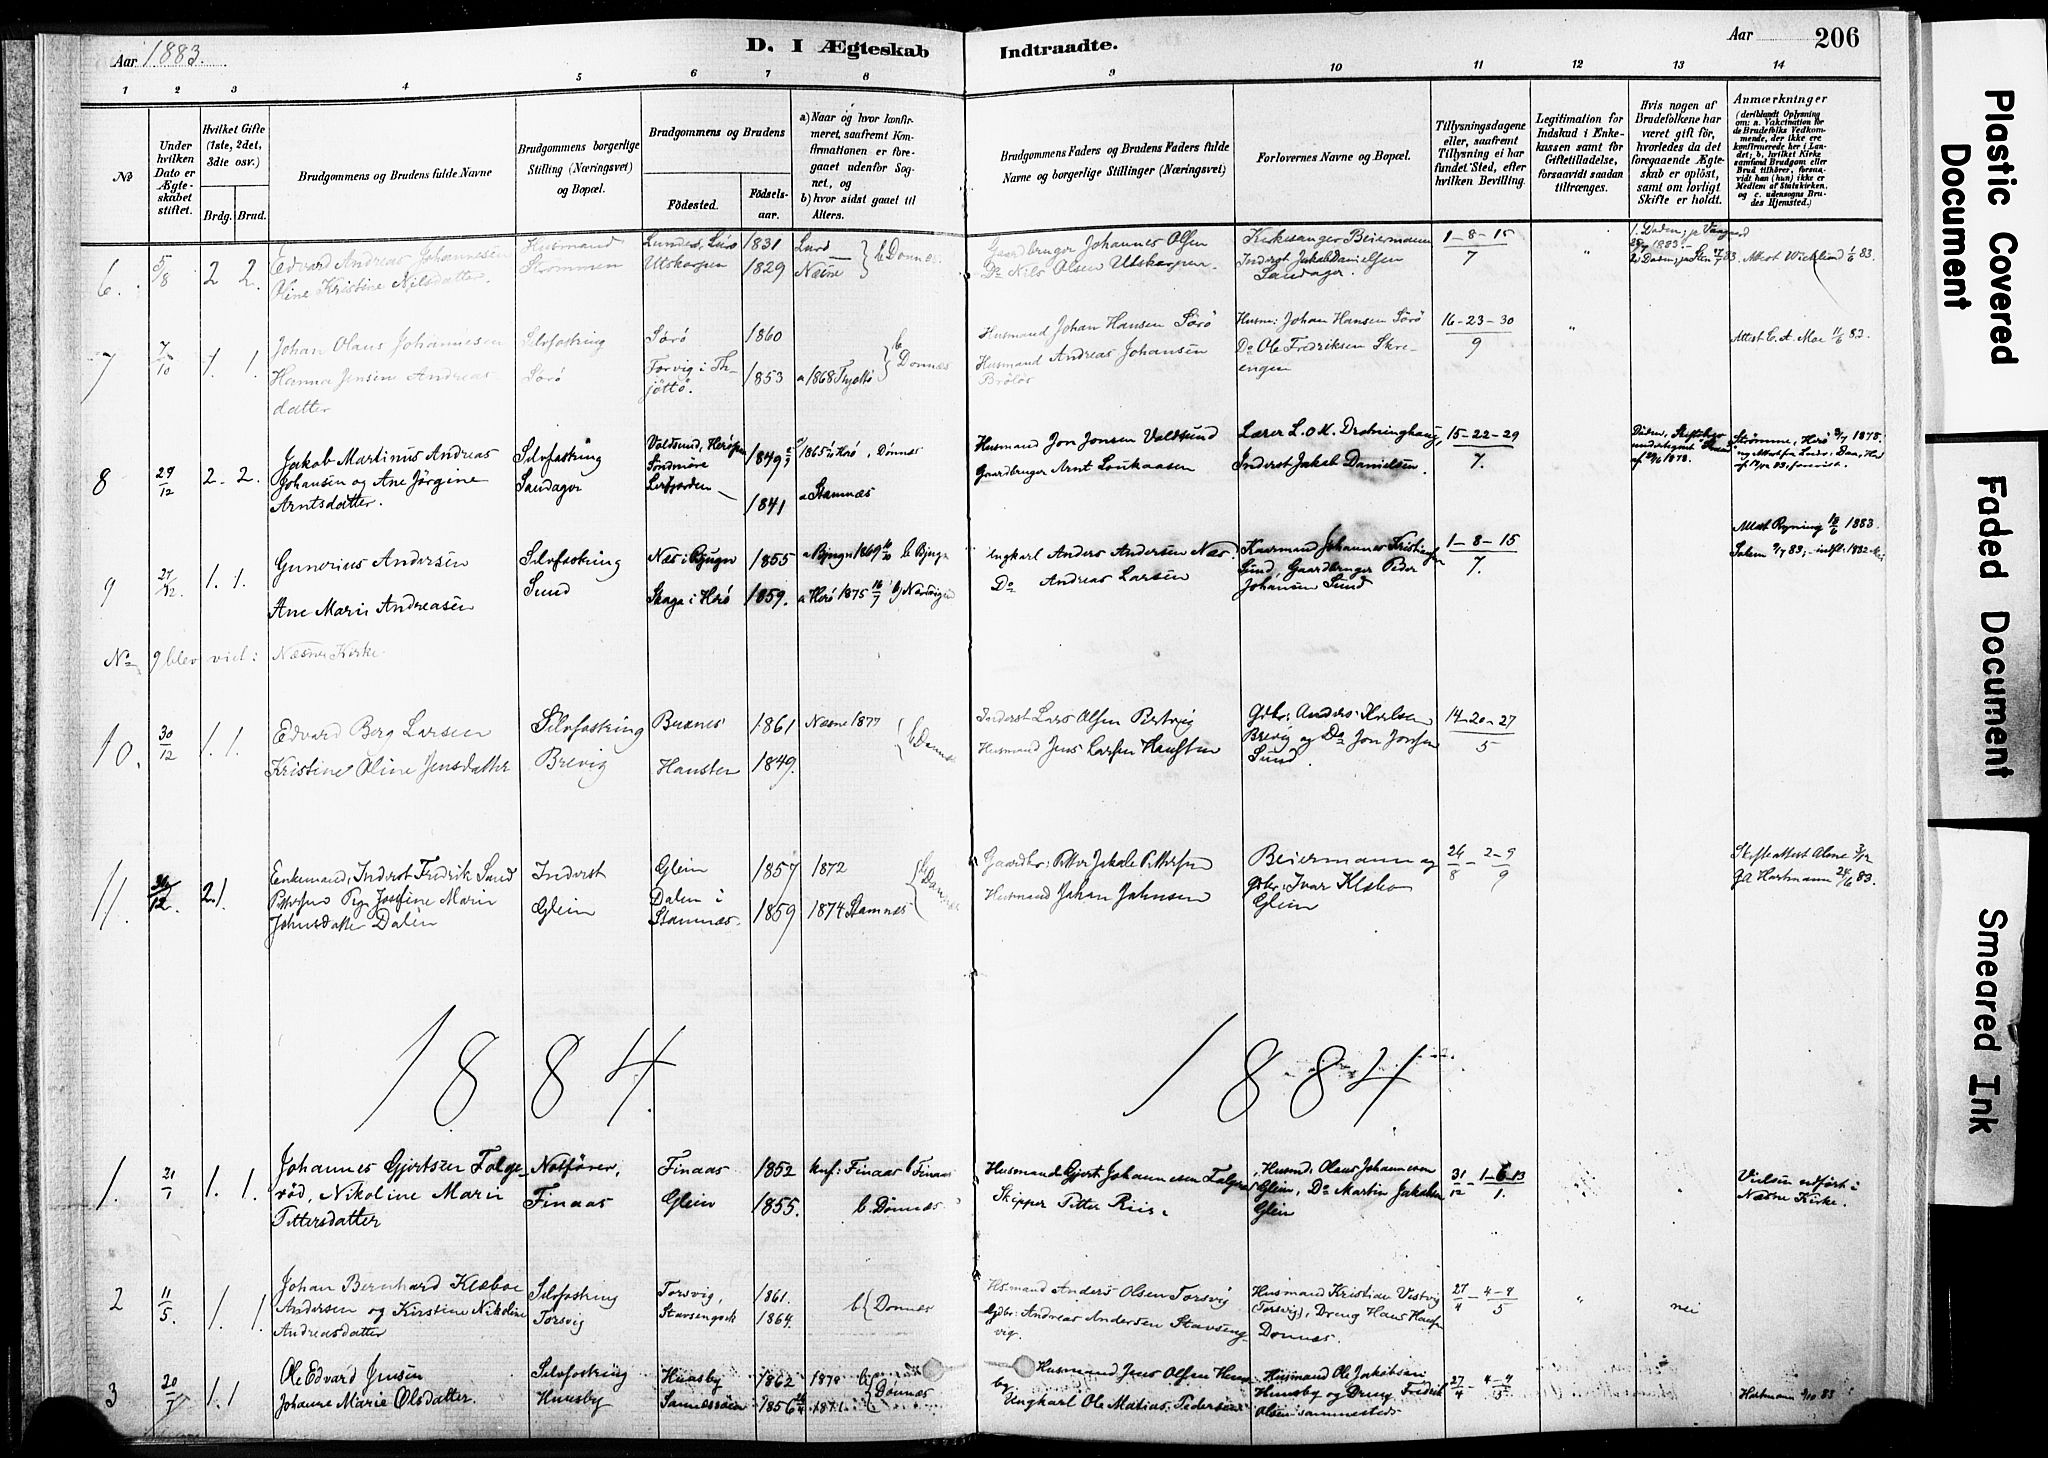 Aar 1883.
D. I Ægteskab
Indtraadte.
Aar
206
1 2 3 4 5 6 7 8 9 10 11 12 13 14
No
Under
hvilken
Dato er
Ægte-
skabet
stiftet.
Hvilket Gifte
(1ste, 2det,
3die osv.)
Brdg. Brud.
Brudgommens og Brudens fulde Navne
Brudgommens borgerlige
Stilling (Næringsvei)
og Bopæl.
Brudgommens og Brudens
Födested.
Födsels-
aar.
a) Naar og hvor konfir-
meret, saafremt Kon-
firmationen er fore-
gaaet udenfor Sog-
net, og
b) hvor sidst gaaet til
Alters.
Brudgommens Faders og Brudens Faders fulde
Navne og borgerlige Stillinger (Næringsvei)
Forlovernes Navne og Bopæl.
Tillysningsdagene
eller, saafremt
Tillysning ei har
fundet Sted, efter
hvilken Bevilling.
Legitimation for
Indskud i Enke-
kassen samt for
Giftetilladelse,
forsaavidt saadan
tiltrænges.
Hvis nogen af
Brudefolkene har
været gift för,
hvorledes da det
foregaaende Ægte-
skab er oplöst,
samt om lovligt
Skifte er holdt.
Anmærkninger
(deriblandt Oplysning
om: a. Vakcination for
de Brudefolks Vedkom-
mende, der ikke ere
konfirmerede her i Lan-
det; b. hvilket Kirke-
samfund Brudgom eller
Brud tilhörer, forsaa-
vidt han (hun) ikke er
Medlem af Statskirken,
og c. udensogns Bru-
des Hjemsted.)
6. 5/8 2 2.
Edvard Andreas Johannesen
Oline Kristine Nilsdatter.
Husmand
Strømmen
Lunder, Lurö 1831
Utskarpen 1829
Lurö
Næsne
b Dönnes
Gaardbruger Johannes Olsen
Do Nils Olsen Utskarpen
Kirkesanger Beiermann
Inderst Jakob Danielsen
Sandager.
1-8-15
7
"
Attest Wicklund 1/6 83.
7 7/10 1. 1.
Johan Olaus Johannesen
Hanna Jensine Andreas
datter
Selvfostring
Sörö
Sörö 1860
Forvig i Th-
jöttö. 1853
a 1868 Thjøttö
b
Dönnæs
Husmand Johan Hansen Sörö
Husmand Andreas Johansen
Husm: Johan Hansen Sörö
Do Ole Fredriksen Skre-
engen
16-23-30
9
"
Attest C. A. Moe 11/6 83.
8 29/12 2. 2.
Jakob Martinus Andreas
Johansen og Ane Jörgine
Arntsdatter.
Selvfostring
Sandager
Valdsund, Heröe
Söndmöre 1849
Leirfjorden 1841
1865 Herö, Dönnes
a Stamnæs
Husmand Jon Jonsen Valdsund
Gaardbruger Arnt Loukaasen
Lærer L. O. M. Dröninghaug
Inderst Jakob Danielsen.
15-22-29
7.
9 27/12 1. 1.
Gunerius Andersen
Ane Marie Andreasen
Selvfostring
Sund
Næs i Bjugn 1855
Skaga i Herö 1859.
a Bjugn 1869 b Bjugn
a Herö 1875 16/7
Ungkarl Anders Andersen Næs.
Do Andreas Larsen
Kaarmand Johannes Kristiansen
Sund, Gaardbruger Peder
Johansen Sund
1-8-15
7.
Attest Ryning 1883.
No 9 blev viet: Næsne Kirke.
10. 30/12 1. 1.
Edvard Berg Larsen
Kristine Oline Jensdatter
Selvfostring
Brevig
Buanes 1861
Hausten 1849.
Næsne 1877
b Dönnæs
Inderst Lars Olsen
Husmand Jens Larsen Hausten
Gdbr: Anders Karlsen
Brevig og Do Jon Jonsen
Sund.
14-20-27
5
11. 30/12. 2. 1.
Enkemand, Inderst Fredrik Sund
Pettersen Pige Josefine Marie
Johnsdatter Dalen
Inderst
Glein
Glein 1857
Dalen i
Stamnæs. 1859
1872
1874 Stamnæs
b Dönnæs
Gaardbr: Petter Jakob Pettersen
Husmand Johan Johnsen
Beiermann og
Gdbr: Ivar Klæbo
Glein
26/8 - 2-9/9
Skifteattest Alme 3/12
Hartmann 24/6 83.
1884.
1884
1. 21/1 1. 1.
Johannes Gjertsen Folge-
röd, Nikoline Marie
Pettersdatter
Notförer,
Finaas
Finaas 1852
Glein 1855.
knf: Finaas b Finaas
b. Dönnæs
Husmand Gjert Johannesen Folgeröd
Skipper Petter Riis.
Husmd: Olaus Johannesen
Glein, Do Martin Jakobsen
Glein
31/12 - 1-6-13
1.
Vielsen udfört i
Næsne Kirke.
2 11/5. 1. 1.
Johan Bernhard Klæboe
Andersen og Kirstine Nikoline
Andreasdatter
Selvfostring
Torsvig
Torsvig, 1861.
Stavsengvik 1864.
b Dönnæs
Husmand Anders Olsen Torsvig
Gdbr: Andreas Andersen Stavseng-
vig.
Husmand Kristian Vestvig
(Torsvig), Dreng Hans Hansen
Dönnes.
27/4 - 4-9/5
"
nei
3 20/7 1. 1
Ole Edvard Jensen
Johanne Marie Olsdatter.
Selvfostring
Huusby
Huusby 1862
Sannessöen 1856
1878
1871.
b
Dönnæs
Husmand Jens Olsen Huusby
Ungkarl Ole Matias Pedersen
Husmand Ole Jakobsen
Huusby og Dreng Fredrik
Olsen sammesteds
27/4 - 4-9/5
Hartmann 9/10 83
Plastic Covered
Document
Faded Document
Smeared Ink